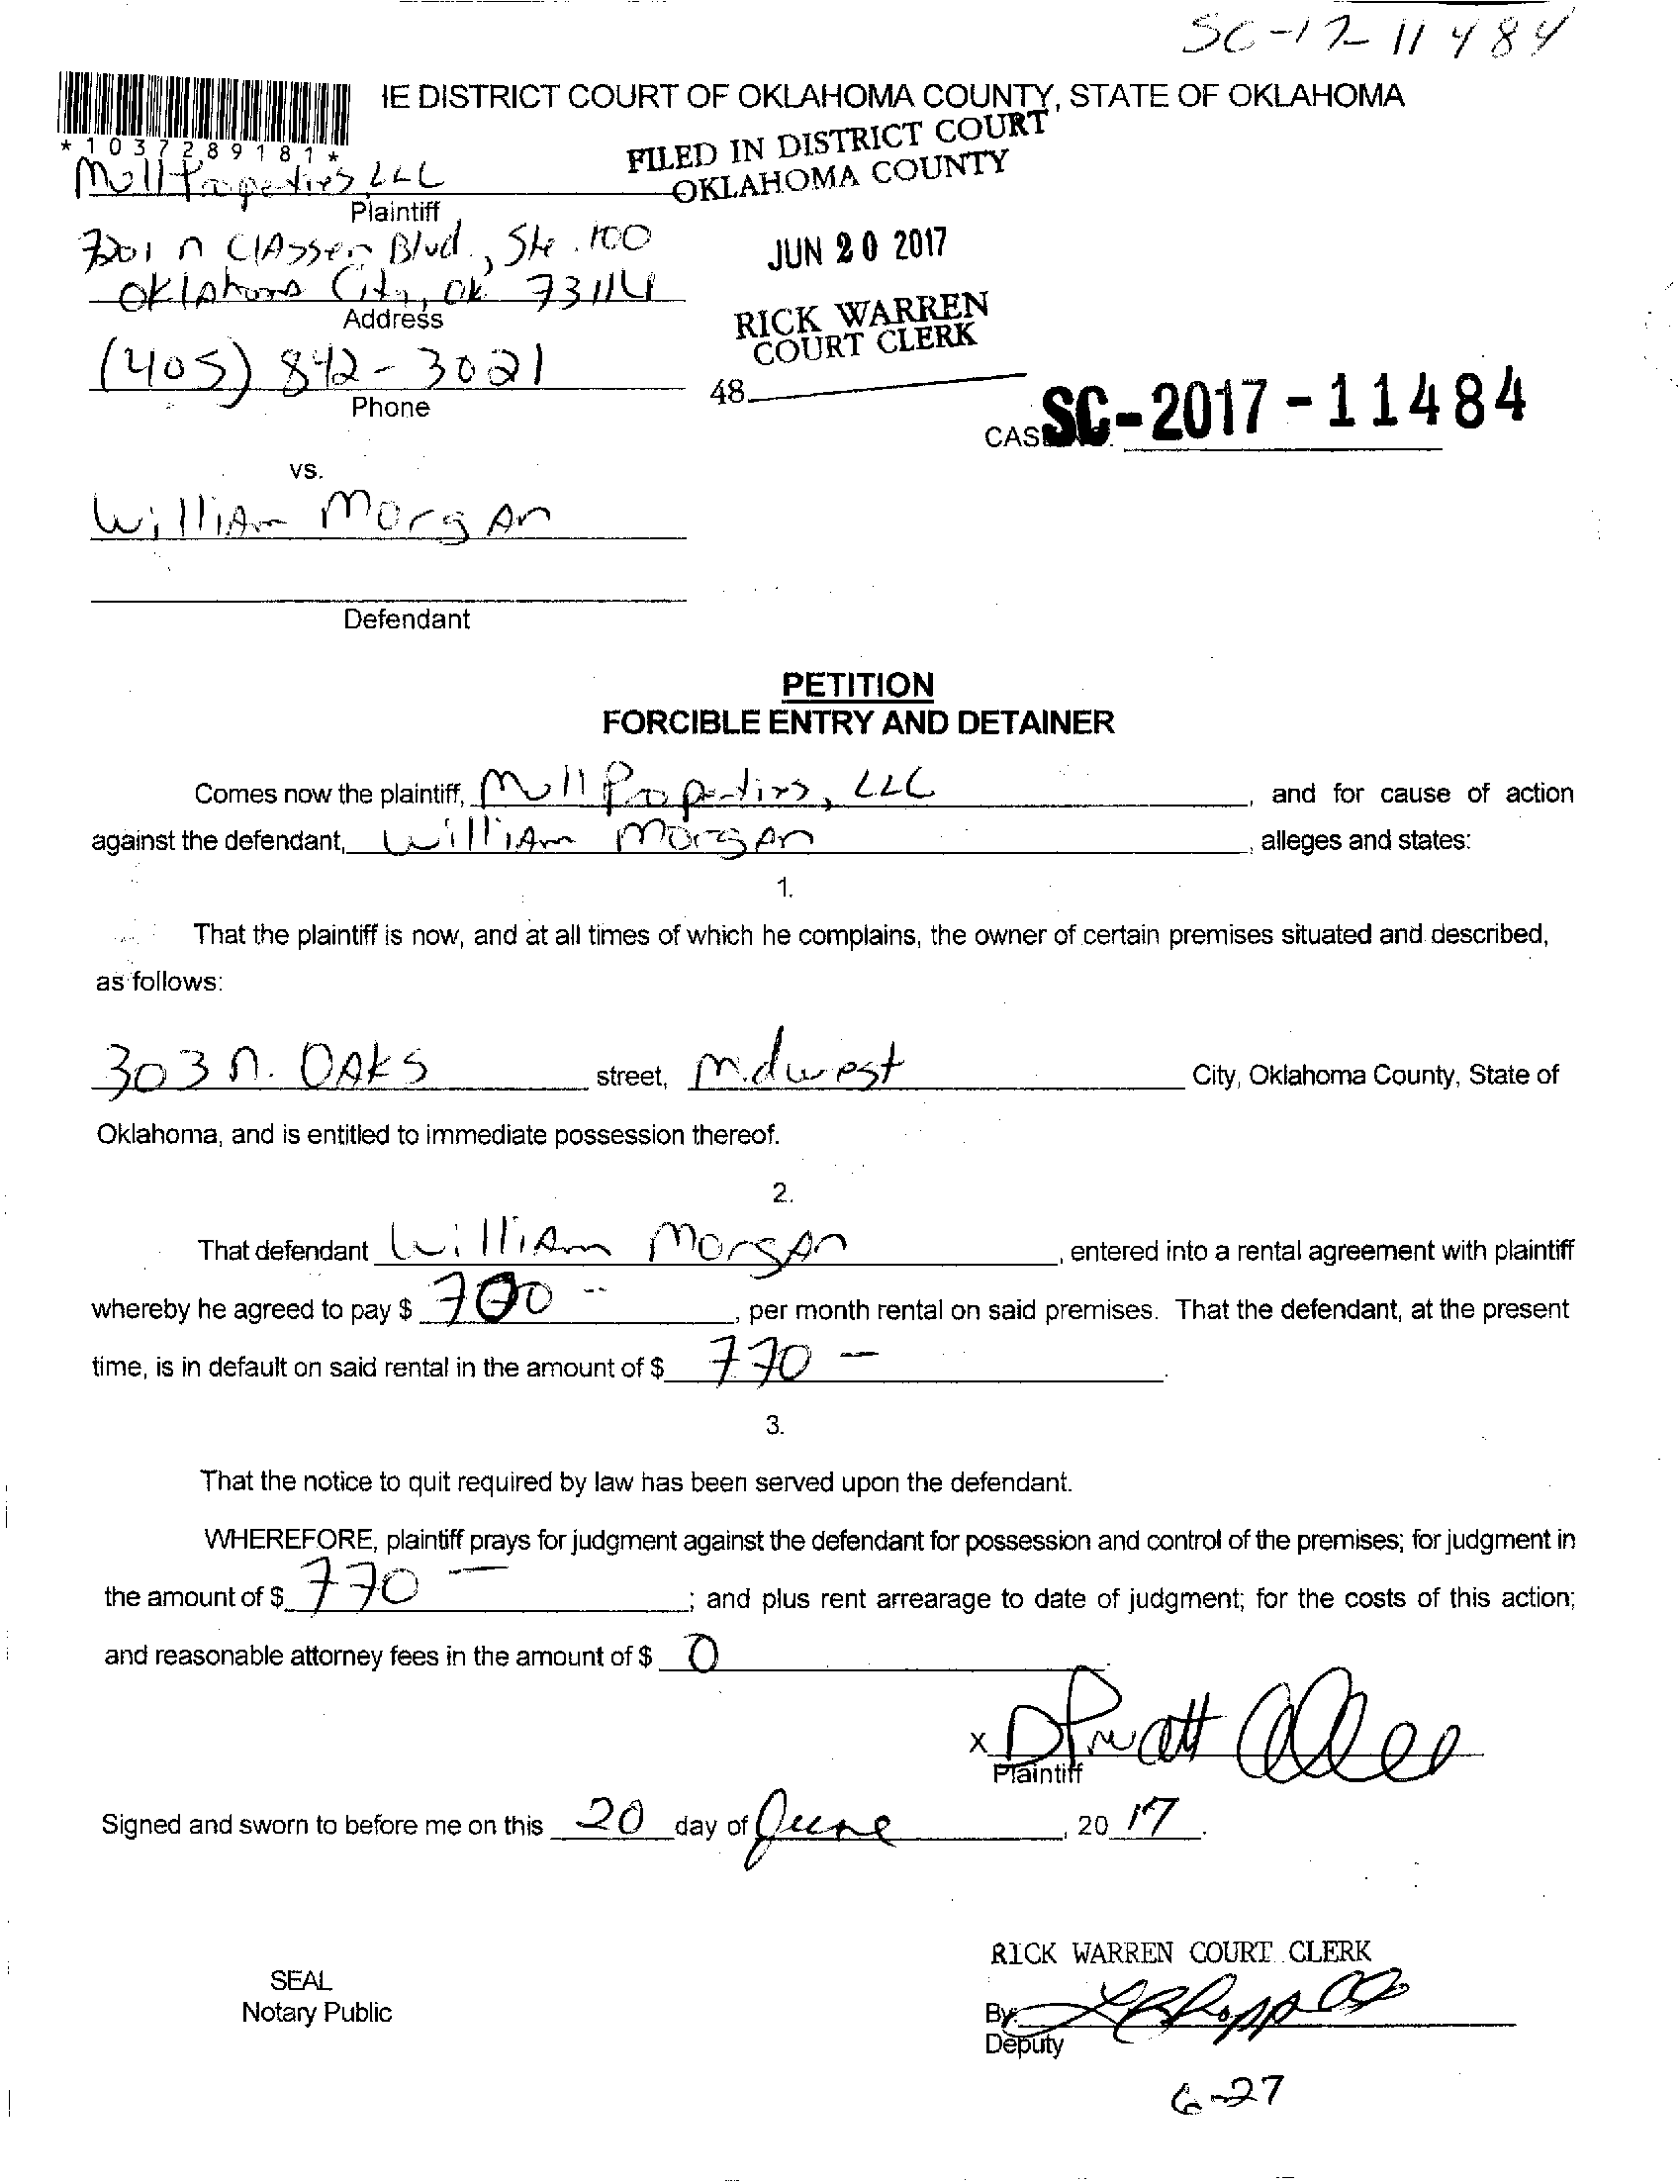 SC-17-11484
IE DISTRICT COURT OF OKLAHOMA COUNTY, STATE OF OKLAHOMA
*1037289181*
FILED IN DISTRICT COURT
OKLAHOMA COUNTY
Moll Properties, LLC
Plaintiff
7201 N Classen Blvd., Ste. 100
JUN 20 2017
Oklahoma City, Ok 73114
Address
RICK WARREN
COURT CLERK
(405) 842-3021
Phone
48
CAS SC-2017-11484
vs.
William Morgan
Defendant
PETITION
FORCIBLE ENTRY AND DETAINER
Comes now the plaintiff, Moll Properties, LLC, and for cause of action
against the defendant, William Morgan, alleges and states:
1.
That the plaintiff is now, and at all times of which he complains, the owner of certain premises situated and described,
as follows:
303 N. OAKS street, Midwest City, Oklahoma County, State of
Oklahoma, and is entitled to immediate possession thereof.
2.
That defendant William Morgan, entered into a rental agreement with plaintiff
whereby he agreed to pay $ 700 --, per month rental on said premises. That the defendant, at the present
time, is in default on said rental in the amount of $ 770 -.
3.
That the notice to quit required by law has been served upon the defendant.
WHEREFORE, plaintiff prays for judgment against the defendant for possession and control of the premises; for judgment in
the amount of $ 770 -; and plus rent arrearage to date of judgment; for the costs of this action;
and reasonable attorney fees in the amount of $ 0.
x
Plaintiff
Signed and sworn to before me on this 20 day of June, 20 17.
RICK WARREN COURT CLERK
SEAL
Notary Public
By:
Deputy
6-27